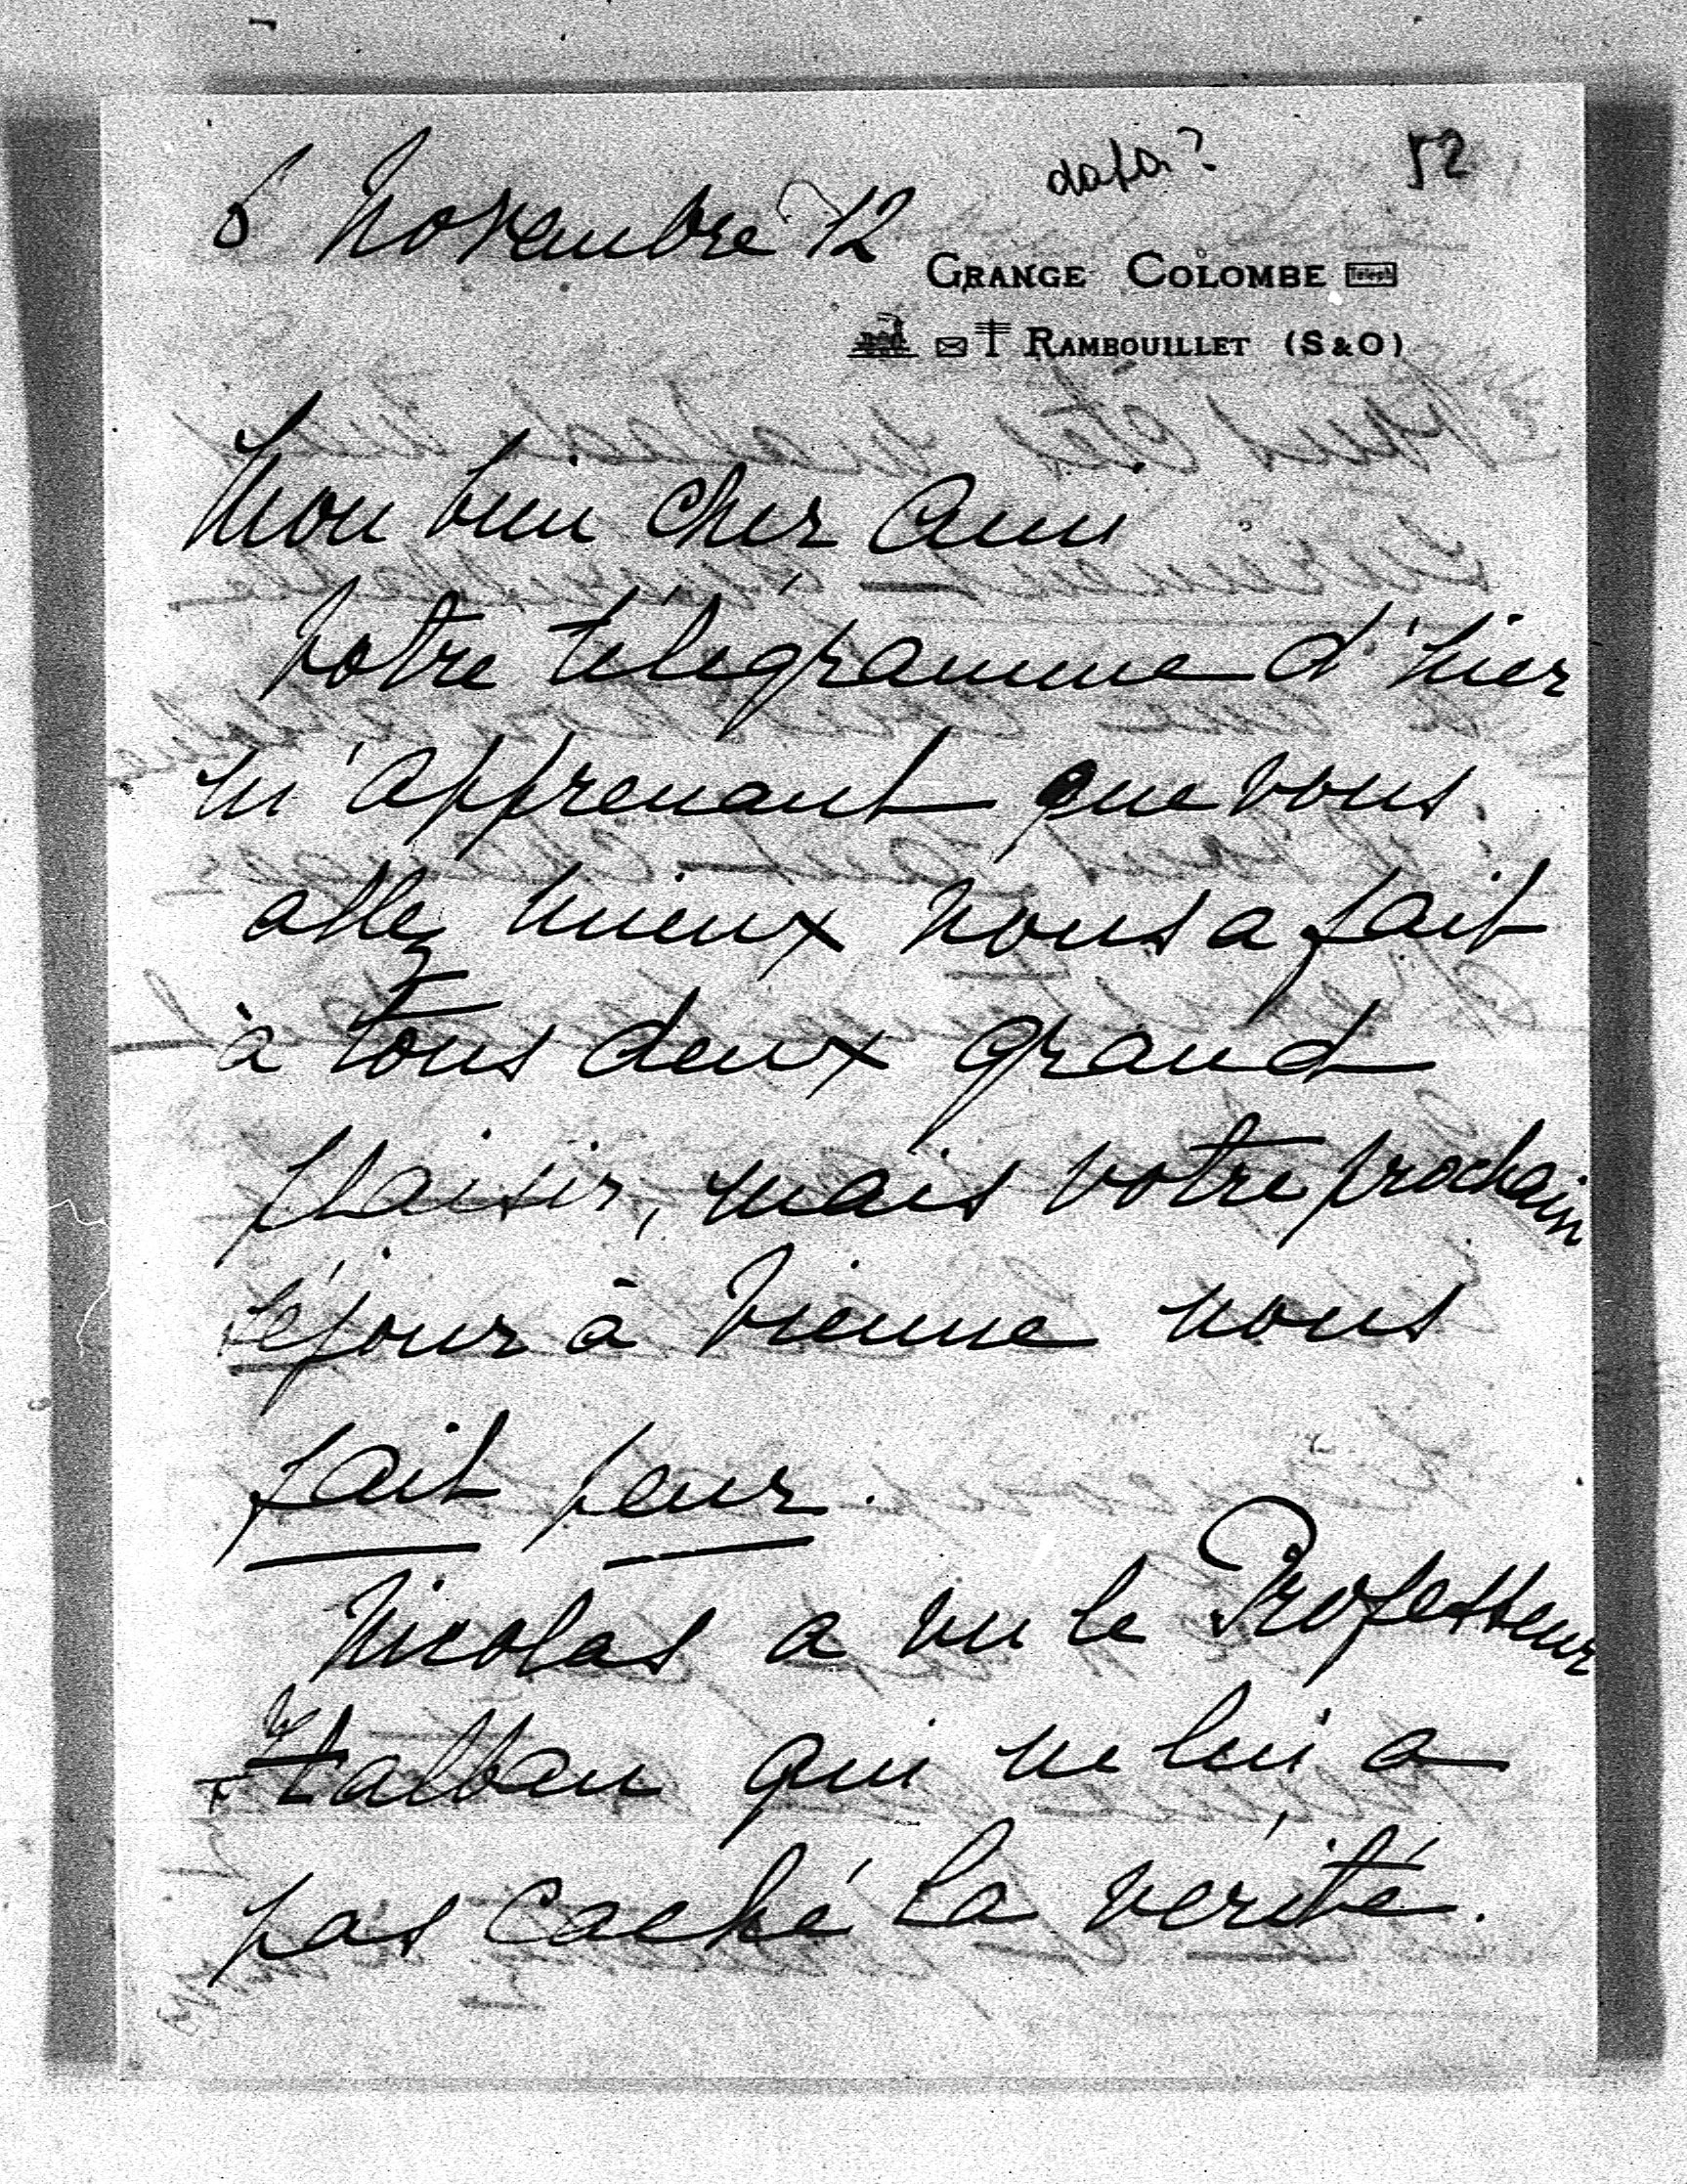 6 Novembre 12
data?
52
GRANGE COLOMBE Téleph
RAMBOUILLET (S & O)
Mon bien cher Ami
Votre télégramme d'hier
m'apprenant que vous
allez mieux nous a fait
à tous deux grand
plaisir, mais votre prochain
séjour à Vienne nous
fait peur.
Nicolas a vu le Professeur
qui ne lui a
pas caché la vérité.